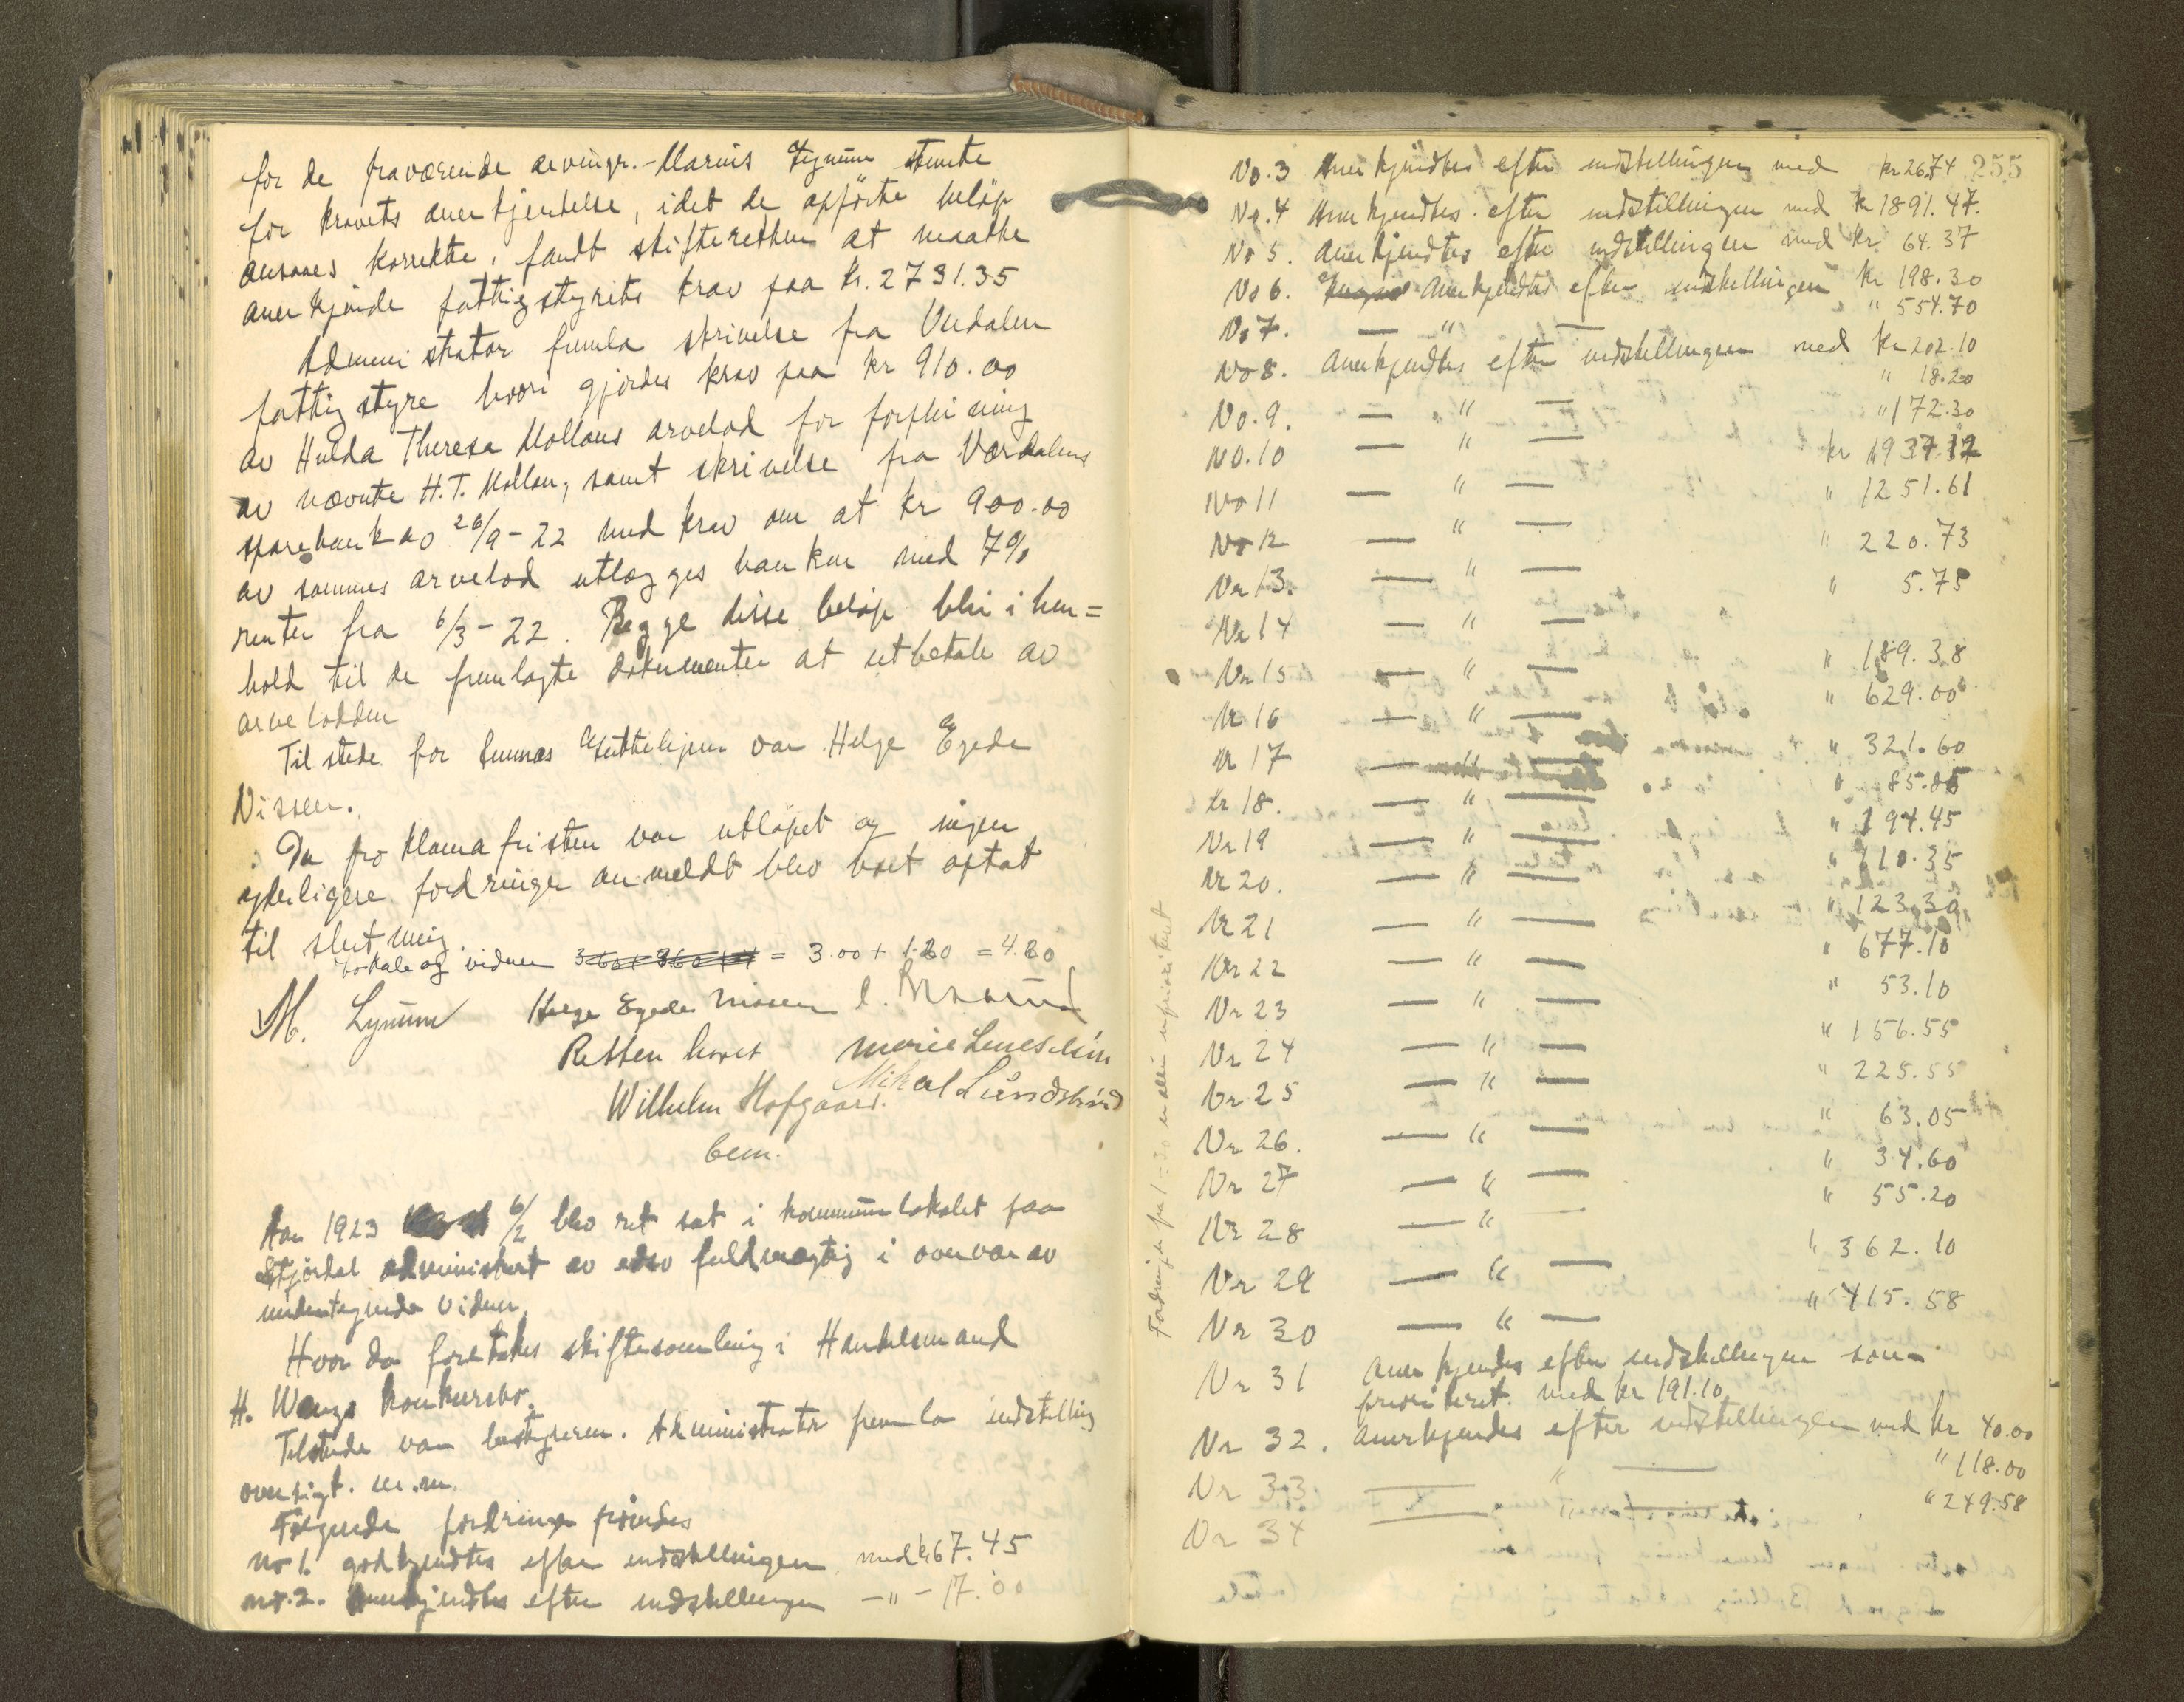 for de fraværende arvinger.- Marius Lynum stemte
for kravets anerkjendelse, idet de opførte beløp
ansaaes korrekte, fandt skifteretten at maatte
anerkjende fattigstyrets krav paa kr. 2731.35
Administrator fremla skrivelse fra Verdalen
fattigstyre hvori gjördes krav paa kr 910.00
av Hulda Theresa Mollans arvelod for forpleining
av nævnte H.T. Mollan, samt skrivelse fra Værdalens
sparebank av 26/9-22 med krav om at kr 900.00
av sammes arvelod utlægges banken med 7%
renter fra 6/3-22. Begge disse beløp blir i hen=
hold til de fremlagte dokumenter at utbetale av
arvelodden
Til stede for var Helge Egede
Nissen.
Da proklamafristen var utløpet og ingen
yderligere fordringer anmeldt blev boet optat
til slutning.
Lokale og vidner = 3.00 + 1.80 = 4.80
M. Lynum Helge Egede Nissen
Retten hævet
Wilhelm Hofgaard. Mikal
bem.
Aar 1923 6/2 blev ret sat i kommunelokalet paa
Stjørdal administrert av edsv fuldmægtig i overvær av
undertegnede vidner.
Hvor da foretokes skiftesamling i Handelsmand
H. Wangs konkursbo.
Tilstede var bestyreren. Administrator fremla indstilling
oversigt. m.m.
Følgende fordringer prøvedes
No 1. godkjendtes efter indstillingen med kr 67.45
No. 2. Anerkjendtes efter indstillingen —"— 17.00
255
No. 3 Anerkjendtes efter indstillingen med kr 26.74
No. 4 Anerkjendtes efter indstillingen med kr 1891.47.
No 5. Anerkjendtes efter indstillingen med kr 64.37
No 6. Anerkjendtes efter indstillingen kr 198.30
No 7. — " — " 554.70
No 8. Anerkjendtes efter indstillingen med kr 202.10
No. 9. — " — " 18.20
No. 10 — " — " 172.30
No 11 — " — kr 1937.12
No 12 — " — " 1251.61
Nr 13. — " — " 220.73
Nr 14 — " — " 5.75
Nr 15 — " — " 189.38
Nr 16 — " — " 629.00
Nr 17 — " — " 321.60
Nr 18. — " — " 85.85
Nr 19 — " — " 194.45
Nr 20. — " — " 110.35
Nr 21 — " — " 123.30
Nr 22 — " — " 677.10
Nr 23 — " — " 53.10
Nr 24 — " — " 156.55
Nr 25 — " — " 225.55
Nr 26. — " — " 63.05
Nr 27 — " — " 34.60
Nr 28 — " — " 55.20
Nr 29 — " — " 362.10
Nr 30 — " — " 415.58
Nr 31 Anerkjendes efter indstillingen som
prioritert. med kr 191.10
Nr 32. Anerkjendes efter indstillingen med kr 40.00
Nr 33. — " — " 118.00
Nr 34 — " — " 249.58
Fordringer fra 1-30 er alle uprioritert